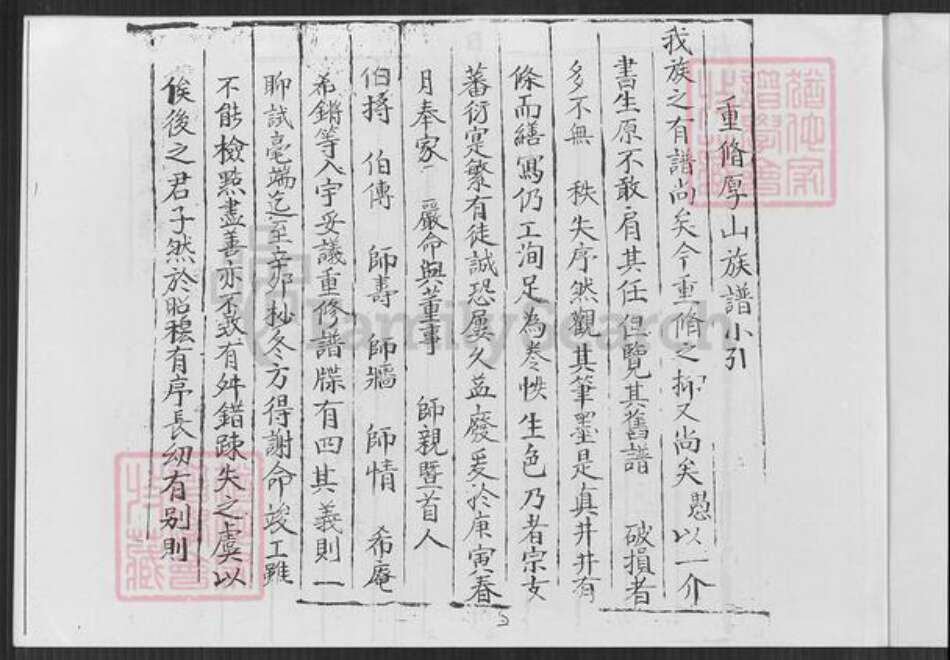 重脩厚山族譜小引
我族之有譜尚矣今重脩之抑又尚矣愚以一介
書生原不敢肩其任但覽其舊譜 破損者
多不無 秩失序然觀其筆墨是真井井有
條而繕寫仍工洵足為卷帙生色乃者宗支
蕃衍寔繁有徒誠恐屢久益廢爰於庚寅春
月奉家 嚴命與董事 師親暨首人
伯摶 伯傳 師壽 師牆 師情 希庵
希鏘等入宇妥議重修譜牒有四其義則一
聊試毫端迄至辛卯抄冬方得謝命竣工雖
不能檢點盡善亦不致有舛錯踈失之虞以
俟後之君子然於昭穆有序長幼有别則
FamilySearch